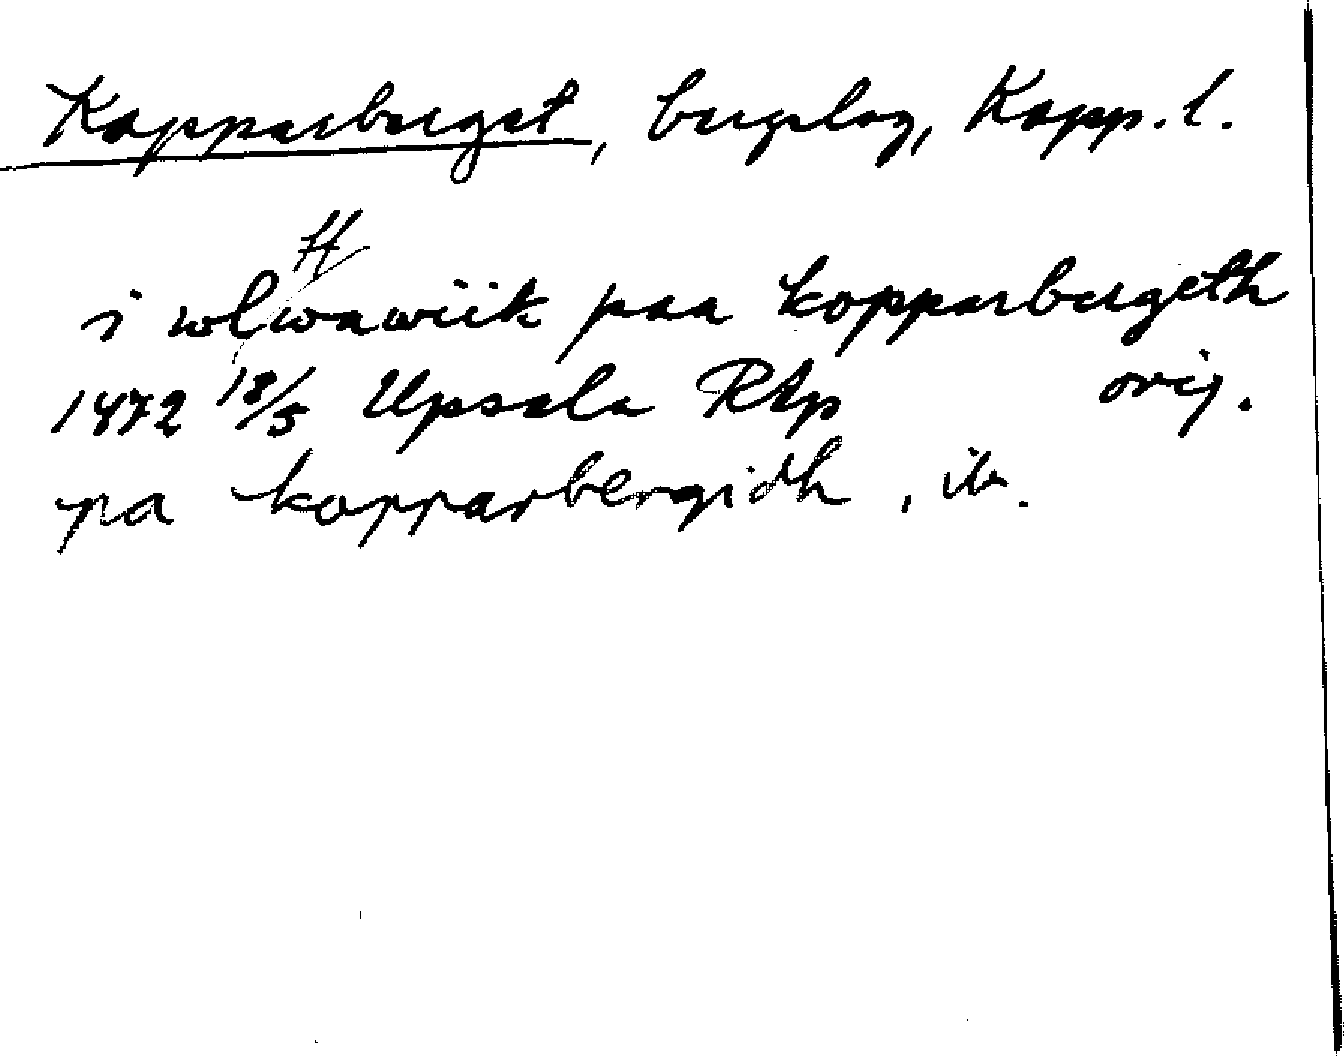 Kopparberget, bergslag, Kopp. l.
ff
i wlwawiik paa kopparbergeth
1472 18/5 Upsala RAp orig.
pa kopparbergidh, ib.